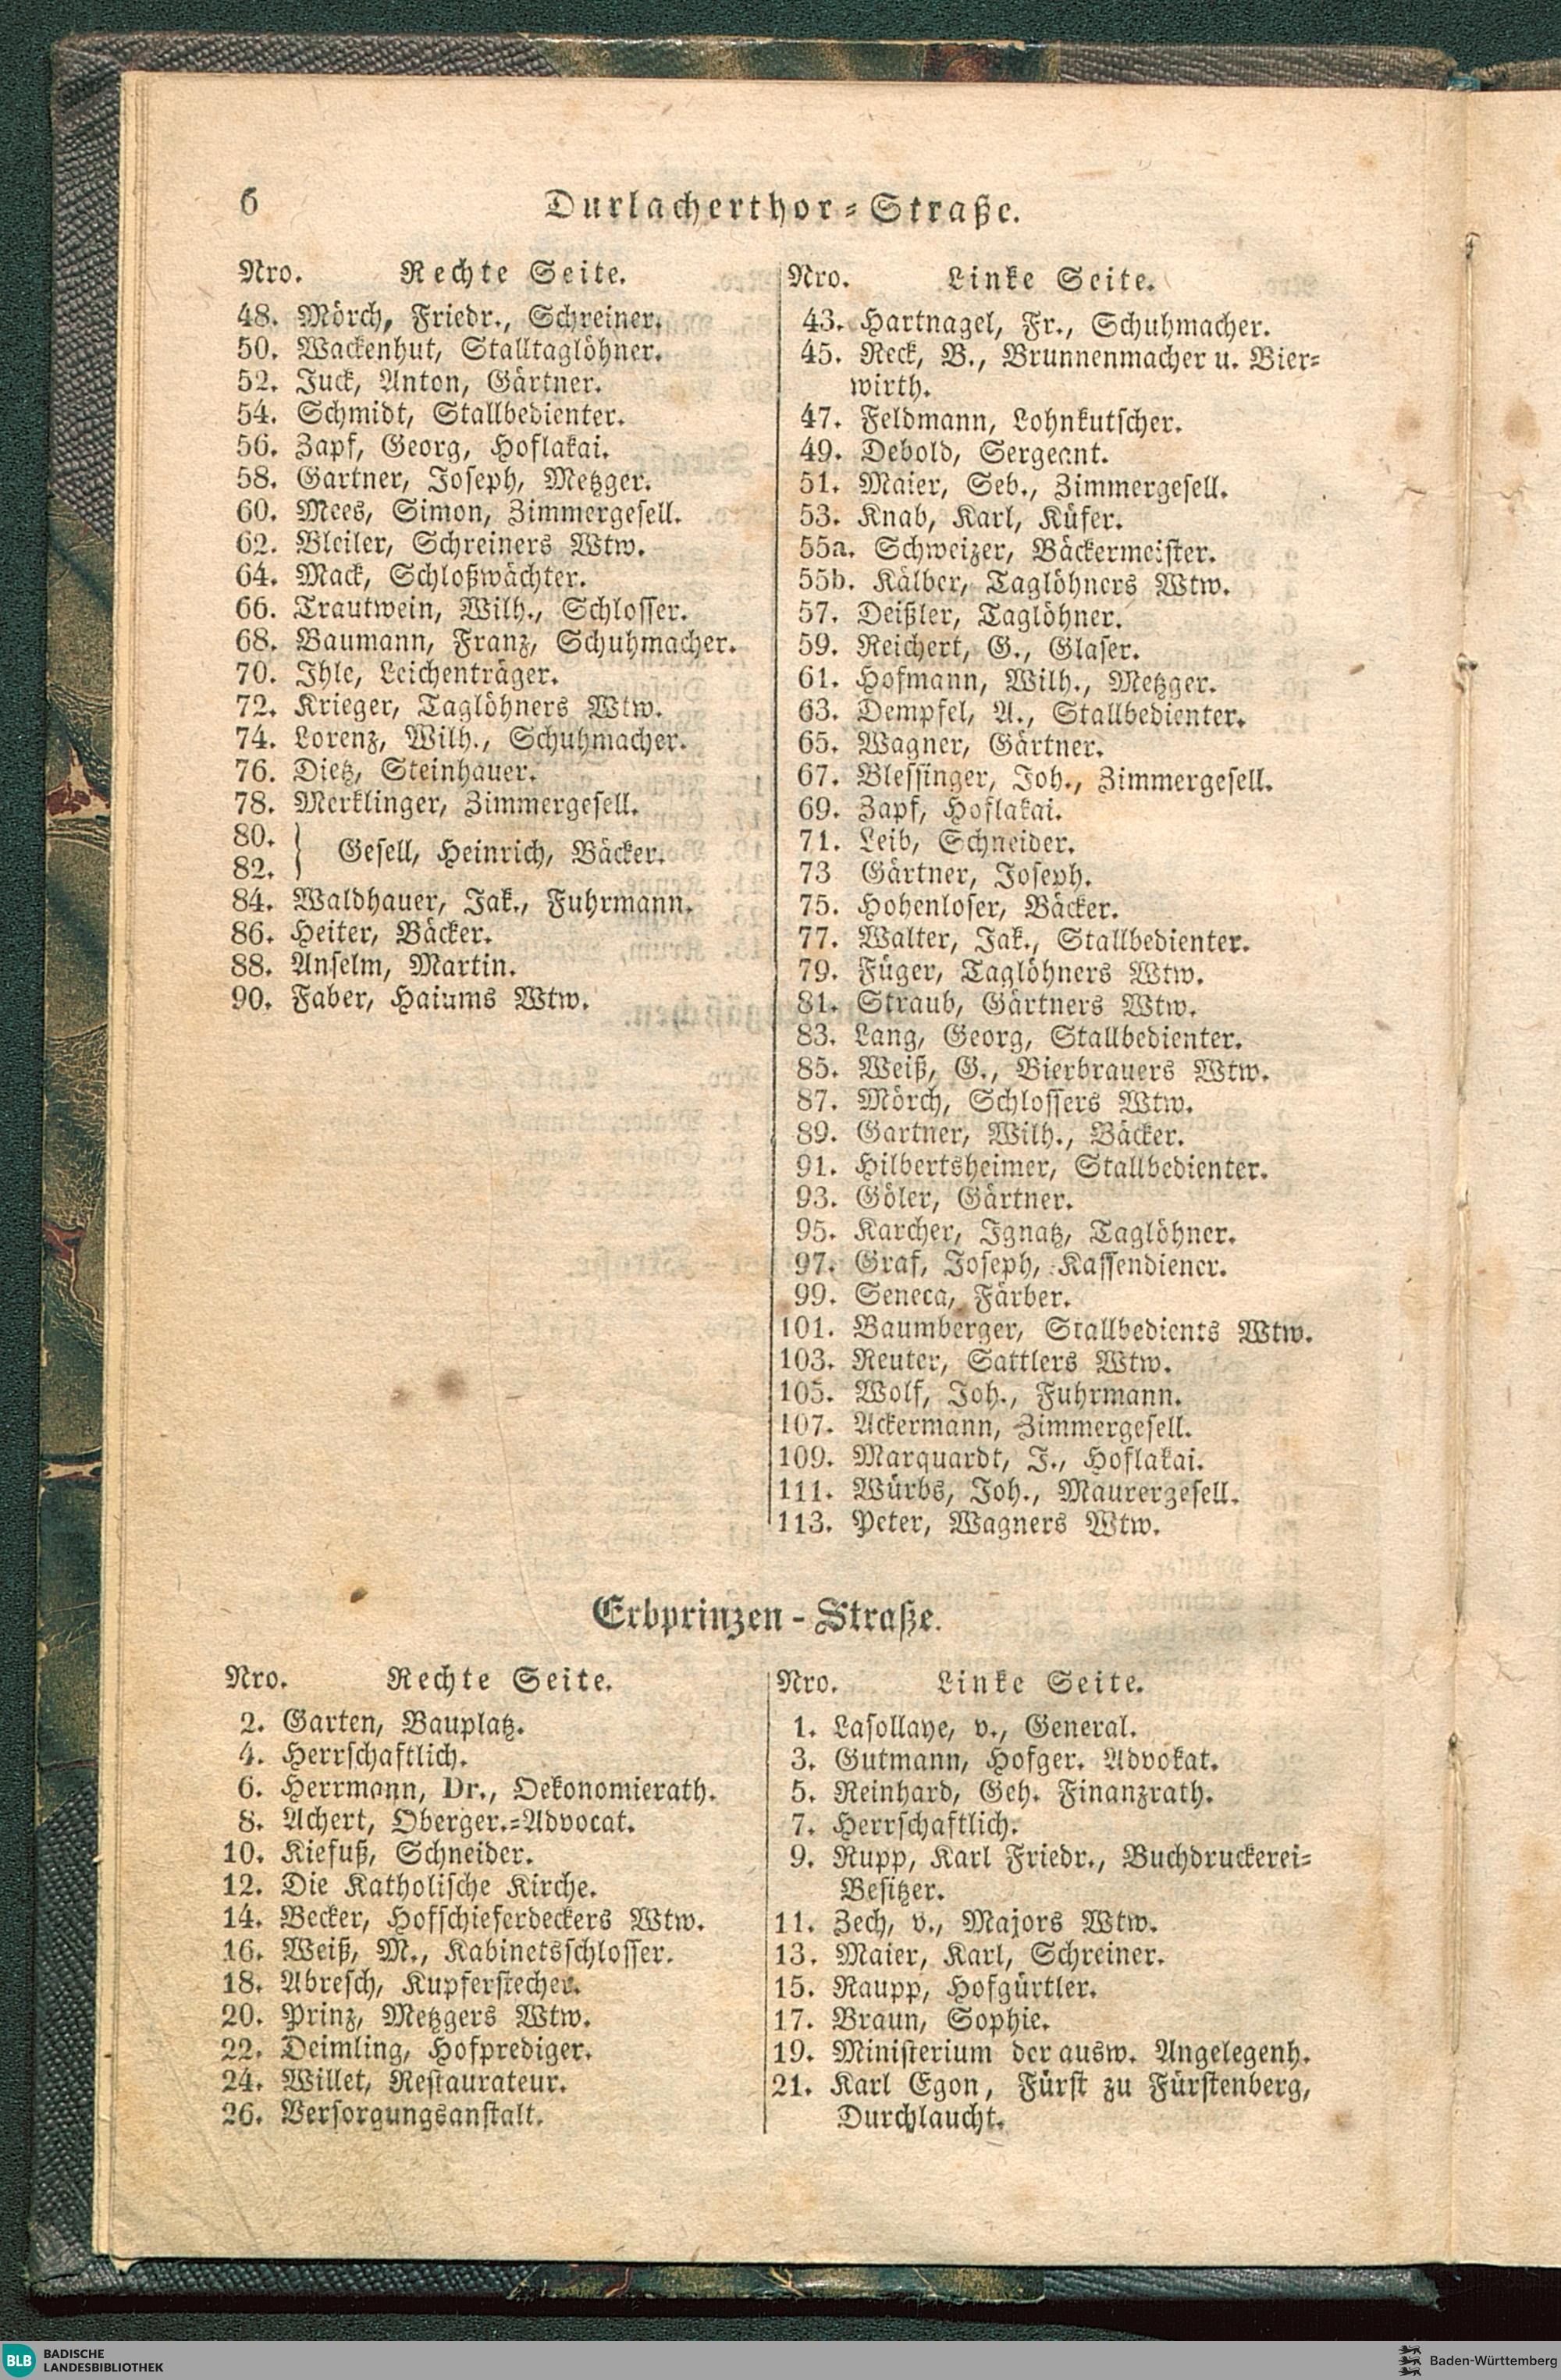 6
Durlacherthor-Straße.
Nro. Rechte Seite.
48. Mörch, Friedr., Schreiner.
50. Wackenhut, Stalltaglöhner.
52. Juck, Anton, Gärtner.
54. Schmidt, Stallbedienter.
56. Zapf, Georg, Hoflakai.
58. Gartner, Joseph, Metzger.
60. Mees, Simon, Zimmergesell.
62. Bleiler, Schreiners Wtw.
64. Mack, Schloßwächter.
66. Trautwein, Wilh., Schlosser.
68. Baumann, Franz, Schuhmacher.
70. Ihle, Leichenträger.
72. Krieger, Taglöhners Wtw.
74. Lorenz, Wilh., Schuhmacher.
76. Dietz, Steinhauer.
78. Merklinger, Zimmergesell.
80.
82. } Gesell, Heinrich, Bäcker.
84. Waldhauer, Jak., Fuhrmann.
86. Heiter, Bäcker.
88. Anselm, Martin.
90. Faber, Haiums Wtw.
Nro. Linke Seite.
43. Hartnagel, Fr., Schuhmacher.
45. Reck, B., Brunnenmacher u. Bier-
wirth.
47. Feldmann, Lohnkutscher.
49. Debold, Sergeant.
51. Maier, Seb., Zimmergesell.
53. Knab, Karl, Küfer.
55a. Schweizer, Bäckermeister.
55b. Kälber, Taglöhners Wtw.
57. Deißler, Taglöhner.
59. Reichert, G., Glaser.
61. Hofmann, Wilh., Metzger.
63. Dempfel, A., Stallbedienter.
65. Wagner, Gärtner.
67. Blessinger, Joh., Zimmergesell.
69. Zapf, Hoflakai.
71. Leib, Schneider.
73 Gärtner, Joseph.
75. Hohenloser, Bäcker.
77. Walter, Jak., Stallbedienter.
79. Füger, Taglöhners Wtw.
81. Straub, Gärtners Wtw.
83. Lang, Georg, Stallbedienter.
85. Weiß, G., Bierbrauers Wtw.
87. Mörch, Schlossers Wtw.
89. Gartner, Wilh., Bäcker.
91. Hilbertsheimer, Stallbedienter.
93. Göler, Gärtner.
95. Karcher, Ignatz, Taglöhner.
97. Graf, Joseph, Kassendiener.
99. Seneca, Färber.
101. Baumberger, Stallbedients Wtw.
103. Reuter, Sattlers Wtw.
105. Wolf, Joh., Fuhrmann.
107. Ackermann, Zimmergesell.
109. Marquardt, J., Hoflakai.
111. Würbs, Joh., Maurergesell.
113. Peter, Wagners Wtw.
Erbprinzen-Straße.
Nro. Rechte Seite.
2. Garten, Bauplatz.
4. Herrschaftlich.
6. Herrmann, Dr., Oekonomierath.
8. Achert, Oberger.-Advocat.
10. Kiefuß, Schneider.
12. Die Katholische Kirche.
14. Becker, Hofschieferdeckers Wtw.
16. Weiß, M., Kabinetsschlosser.
18. Abresch, Kupferstecher.
20. Prinz, Metzgers Wtw.
22. Deimling, Hofprediger.
24. Willet, Restaurateur.
26. Versorgungsanstalt.
Nro. Linke Seite.
1. Lasollaye, v., General.
3. Gutmann, Hofger. Advokat.
5. Reinhard, Geh. Finanzrath.
7. Herrschaftlich.
9. Rupp, Karl Friedr., Buchdruckerei-
Besitzer.
11. Zech, v., Majors Wtw.
13. Maier, Karl, Schreiner.
15. Raupp, Hofgürtler.
17. Braun, Sophie.
19. Ministerium der ausw. Angelegenh.
21. Karl Egon, Fürst zu Fürstenberg,
Durchlaucht.
BLB BADISCHE
LANDESBIBLIOTHEK
Baden-Württemberg